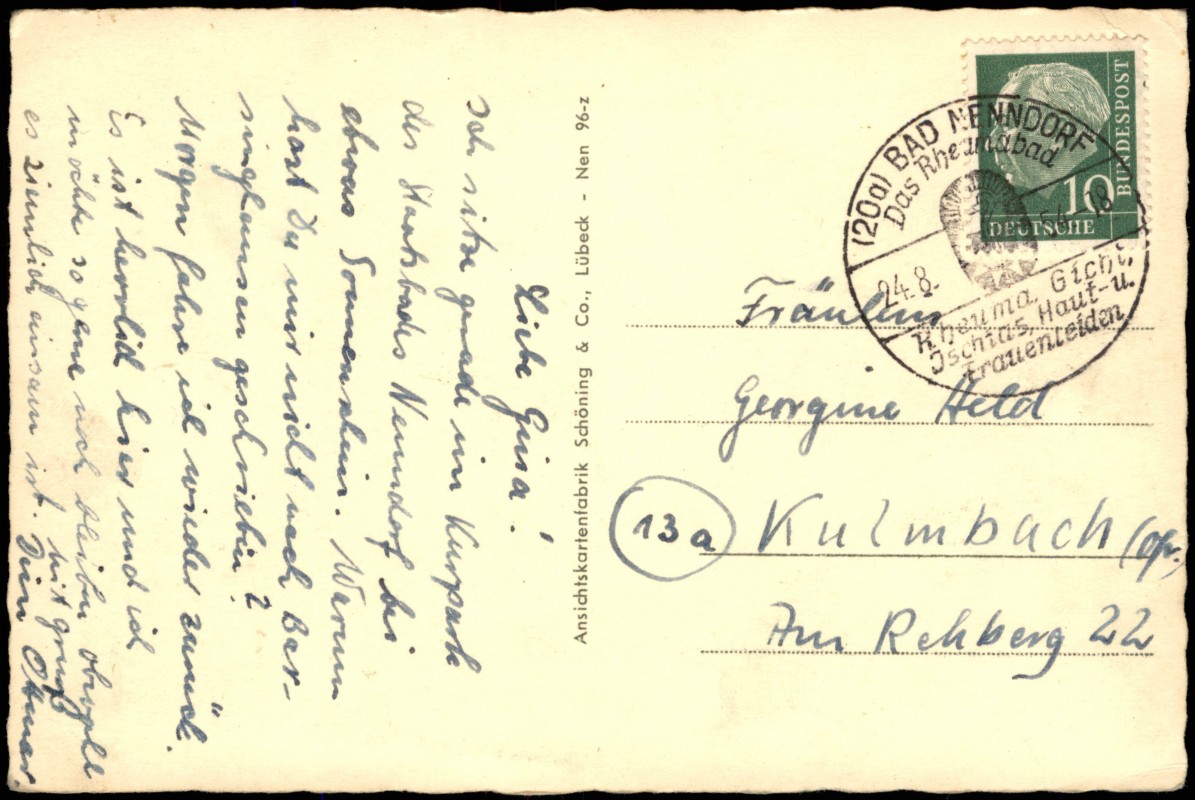 Liebe Guisa!
Ich sitze gerade im Kurpark
des Staatsbades Nenndorf bei
etwas Sonnenschein. Warum
hast Du mir nicht nach Bar-
singhausen geschrieben?
Morgen fahre ich wieder zurück.
Es ist herrlich hier und ich
möchte so gerne noch bleiben obwohl
es ziemlich einsam ist. Mit Gruß
Dein Otmar.
Ansichtskartenfabrik Schöning & Co., Lübeck - Nen 96-z
BUNDESPOST
10
DEUTSCHE
(20a) BAD NENNDORF
Das Rheumabad
24.8. 56-18
Rheuma, Gicht,
Ischias, Haut-u.
Frauenleiden
Fräulein
Georgine Held
13a Kulmbach (Ofr.
Am Rehberg 22